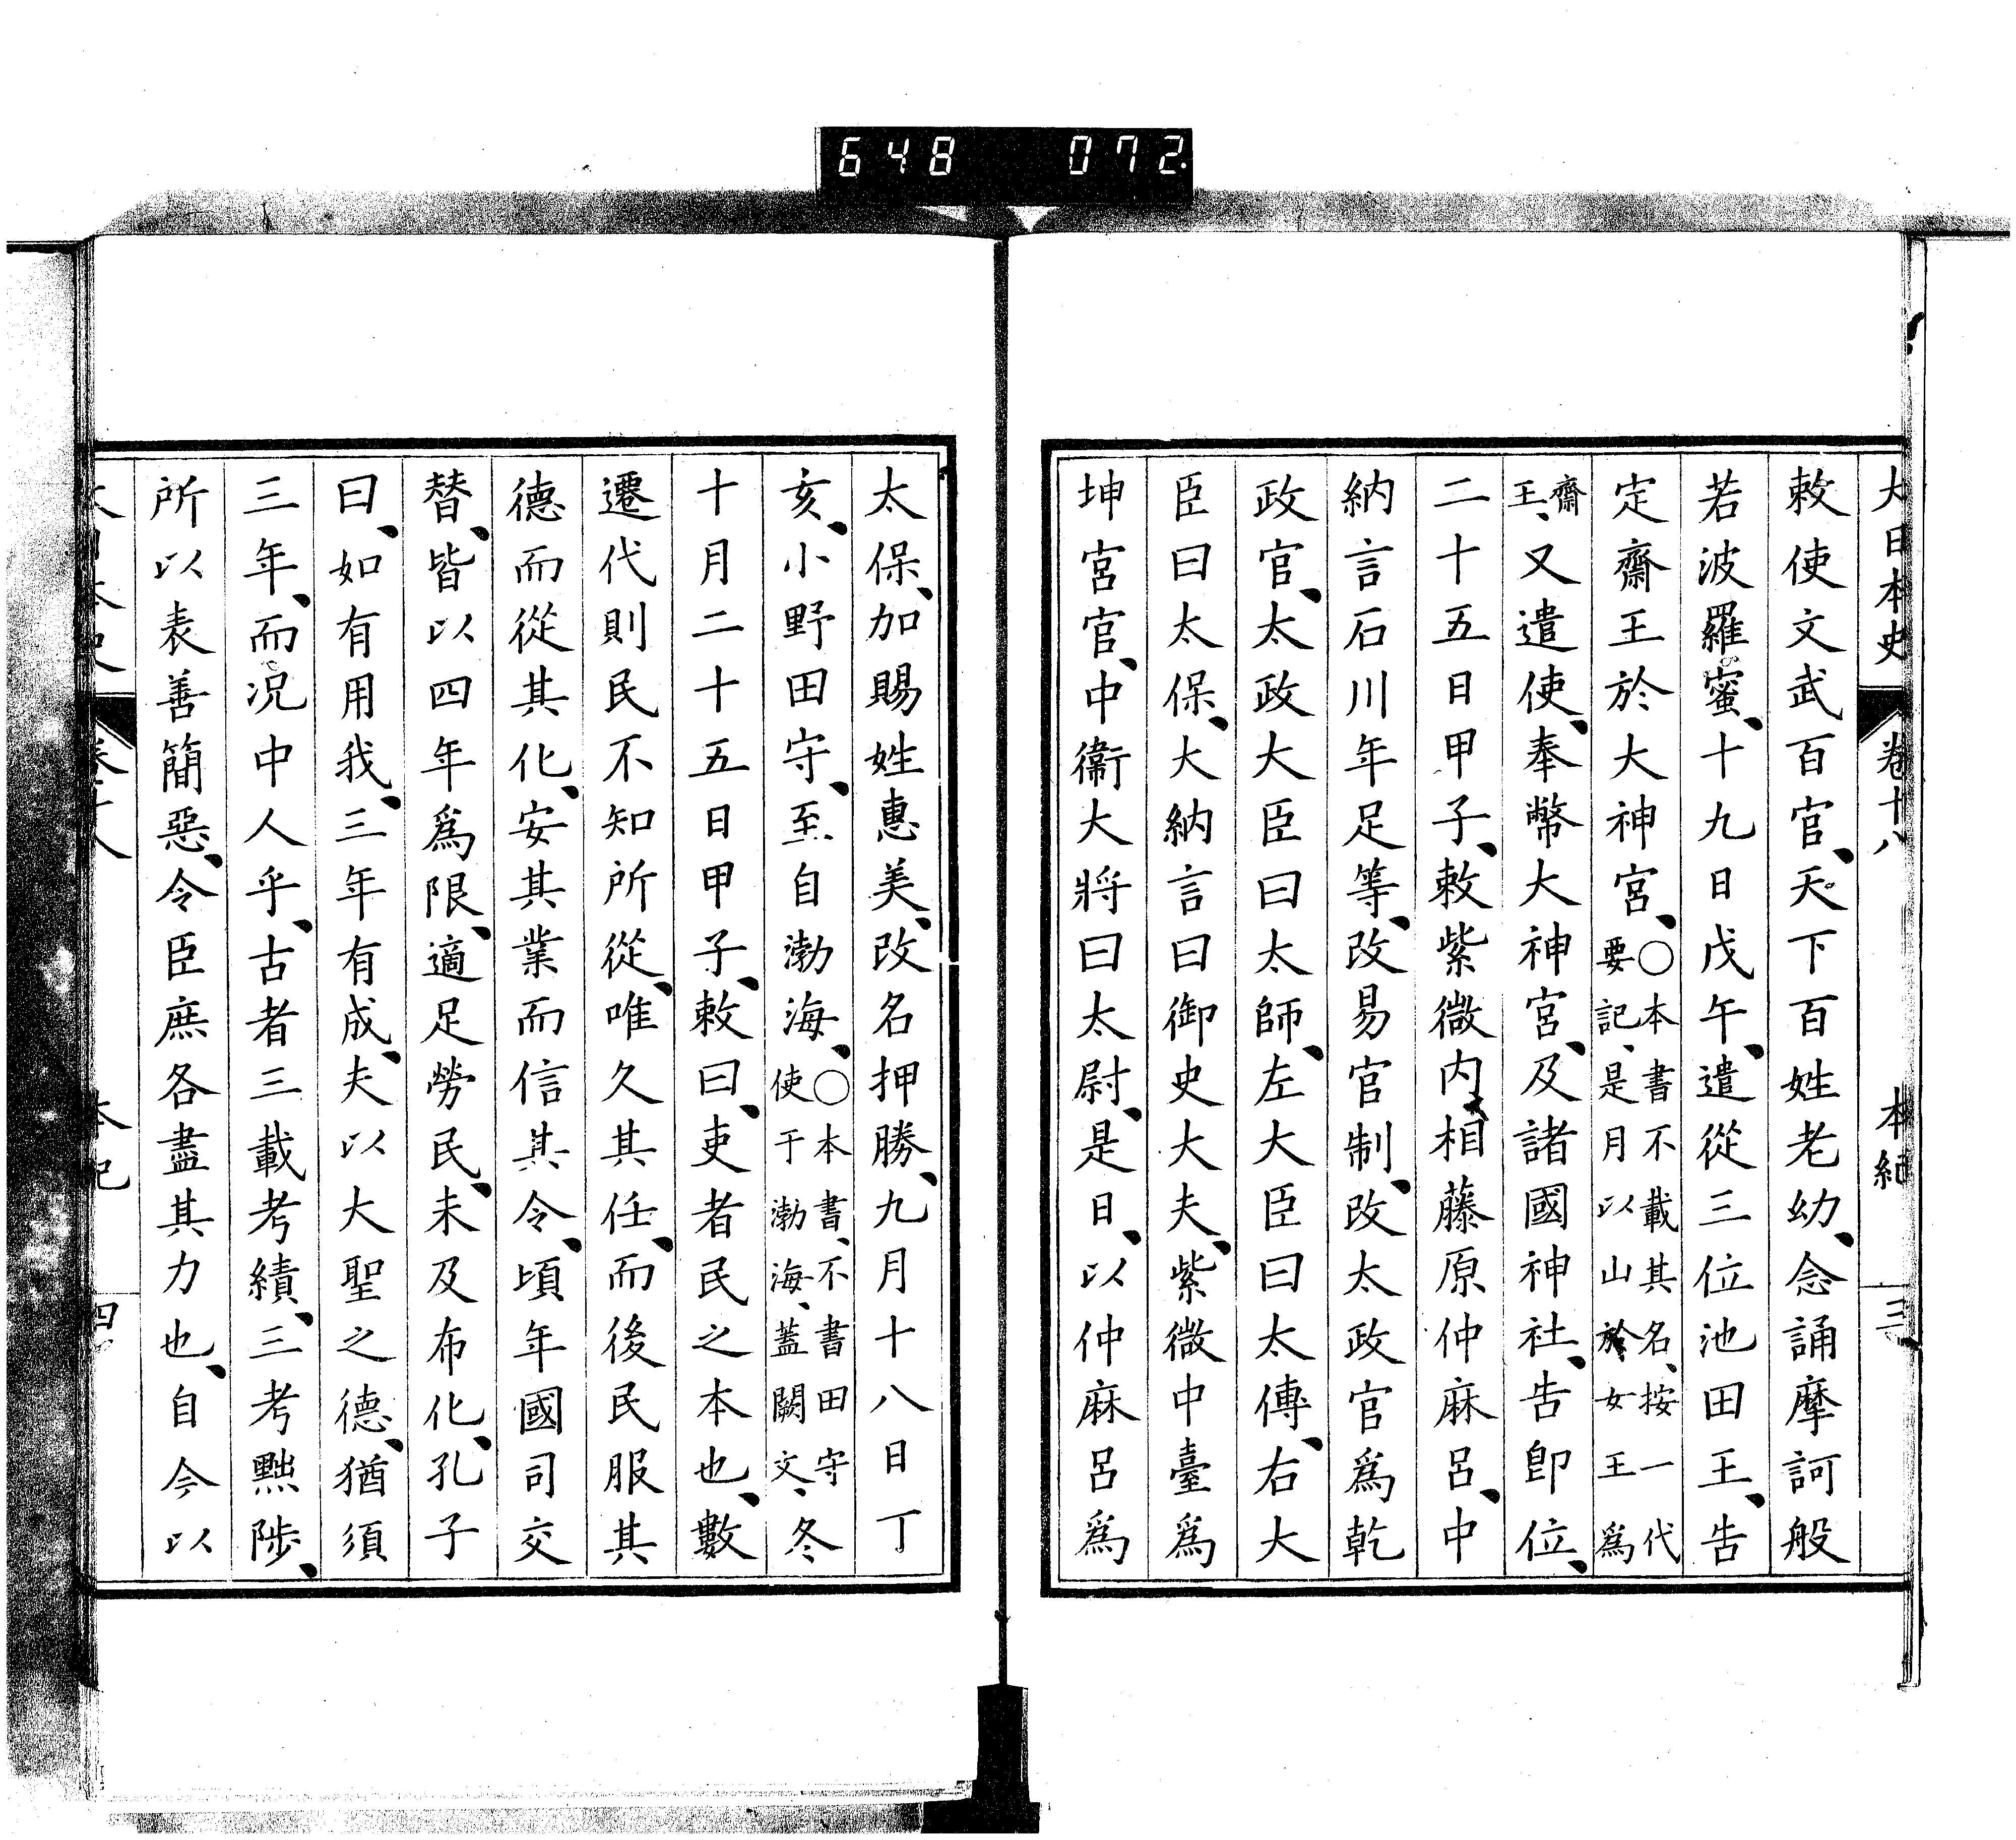 648 072
大日本史 卷十八 本紀 三
敕使文武百官、天下百姓老幼、念誦摩訶般
若波羅蜜、十九日戊午、遣從三位池田王、告
定齋王於大神宮、○本書不載其名、按一代要記、是月以山於女王爲
齋王、又遣使、奉幣大神宮、及諸國神社、告卽位、
二十五日甲子、敕紫微內相藤原仲麻呂、中
納言石川年足等、改易官制、改太政官爲乾
政官、太政大臣曰太師、左大臣曰太傳、右大
臣曰太保、大納言曰御史大夫、紫微中臺爲
坤宮官、中衞大將曰太尉、是日、以仲麻呂爲
太保、加賜姓惠美、改名押勝、九月十八日丁
亥、小野田守、至自渤海、○本書、不書田守使于渤海、蓋闕文、冬
十月二十五日甲子、敕曰、吏者民之本也、數
遷代則民不知所從、唯久其任、而後民服其
德而從其化、安其業而信其令、頃年國司交
替、皆以四年爲限、適足勞民、未及布化、孔子
曰、如有用我、三年有成、夫以大聖之德、猶須
三年、而況中人乎、古者三載考績、三考黜陟、
所以表善簡惡、令臣庶各盡其力也、自今以
大日本史 卷十八 本紀 四